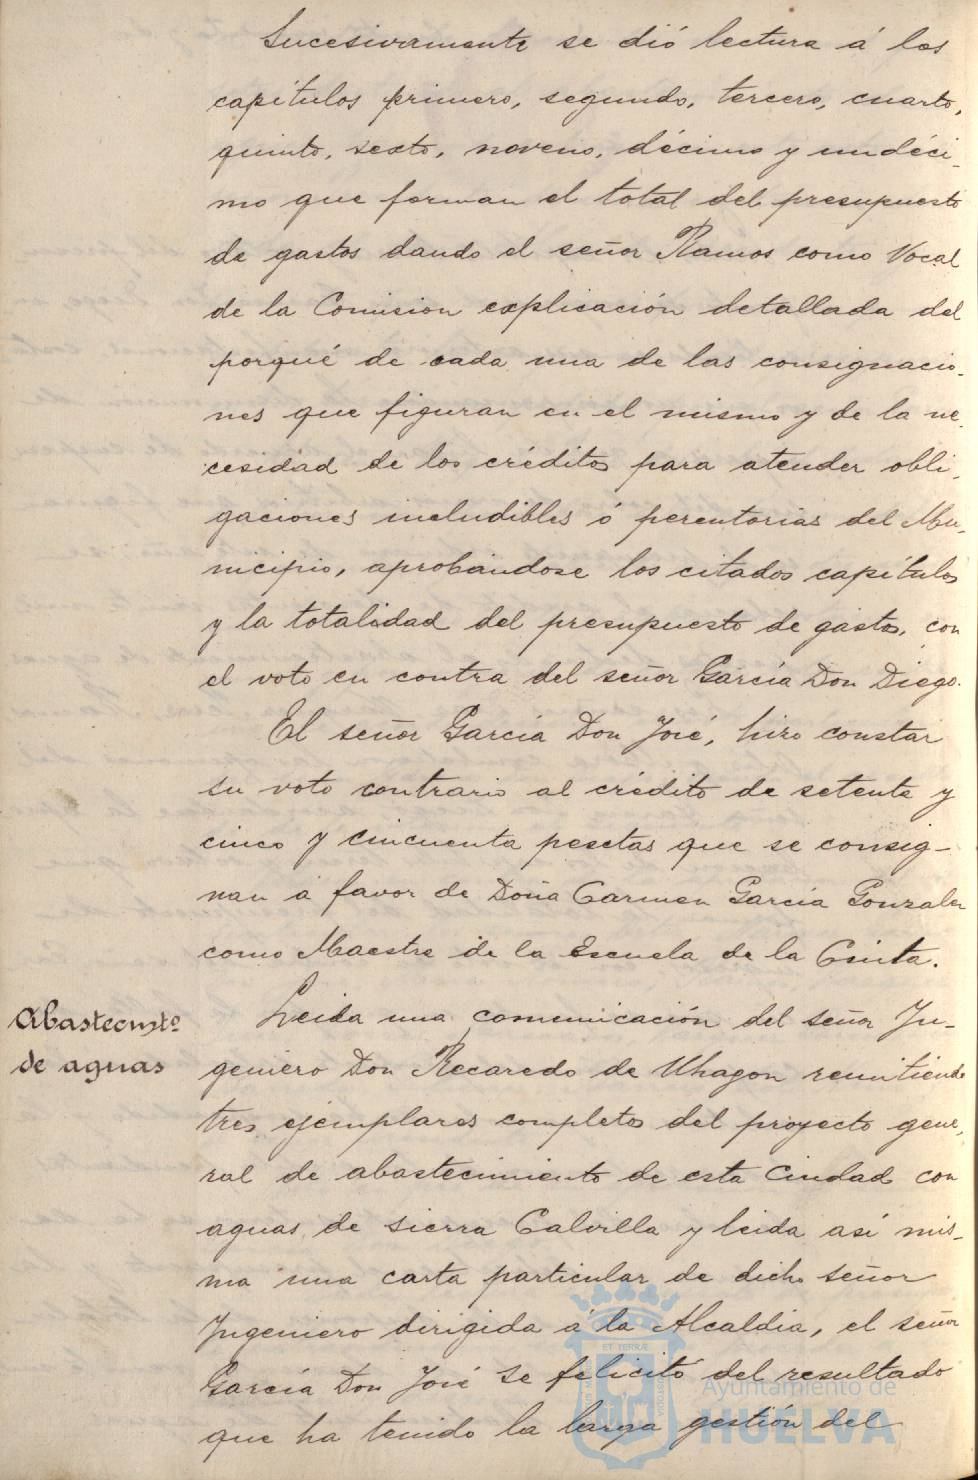 Sucesivamente se dió lectura á los
capítulos primero, segundo, tercero, cuarto,
quinto, sexto, noveno, décimo y undéci-
mo que forman el total del presupuesto
de gastos dando el señor Ramos como Vocal
de la Comision explicación detallada del
porqué de cada una de las consignacio-
nes que figuran en el mismo y de la ne-
cesidad de los créditos para atender obli-
gaciones ineludibles ó perentorias del Mu-
nicipio, aprobándose los citados capítulos
y la totalidad del presupuesto de gastos, con
el voto en contra del señor García Don Diego.
El señor García Don José, hizo constar
su voto contrario al crédito de setenta y
cinco y cincuenta pesetas que se consig-
nan á favor de Doña Carmen García Gonzalez
como Maestra de la Escuela de la Cinta.
Abastecmtº
de aguas
Leida una comunicación del señor In-
geniero Don Recaredo de Uhagon remitiendo
tres ejemplares completos del proyecto gene-
ral de abastecimiento de esta Ciudad con
aguas de sierra Calvilla y leida así mis-
ma una carta particular de dicho señor
Ingeniero dirigida á la Alcaldia, el señor
García Don José se felicitó del resultado
que ha tenido la larga gestión del
ET TERRÆ
Ayuntamiento de
HUELVA